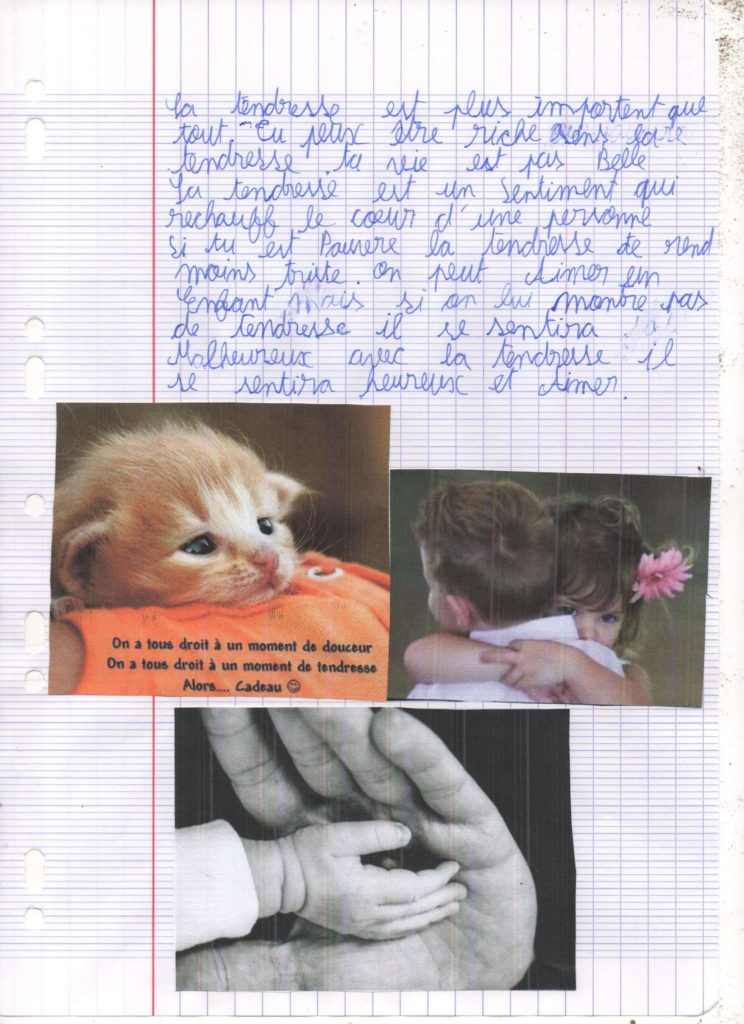 La tendresse est plus importent que
tout. Tu peux être riche sens
tendresse ta vie est pas Belle
La tendresse est un Sentiment qui
rechauff le coeur d'une personne
Si tu est Pauvere la tendresse te rend
moins triste. on peut Aimer un
Enfant mais si on lui montre pas
de tendresse il se sentira
Malheureux avec la tendresse il
se sentira heureux et Aimer.
On a tous droit à un moment de douceur
On a tous droit à un moment de tendresse
Alors.... Cadeau ☺